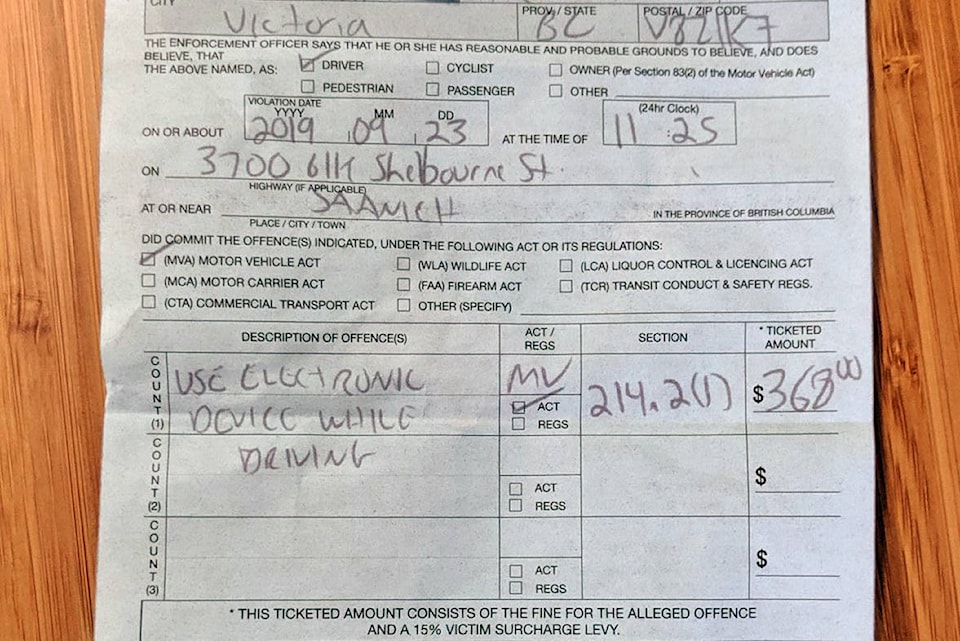 CITY PROV / STATE POSTAL / ZIP CODE
Victoria BC V8Z1K7
THE ENFORCEMENT OFFICER SAYS THAT HE OR SHE HAS REASONABLE AND PROBABLE GROUNDS TO BELIEVE, AND DOES
BELIEVE, THAT
THE ABOVE NAMED, AS: DRIVER CYCLIST OWNER (Per Section 83(2) of the Motor Vehicle Act)
PEDESTRIAN PASSENGER OTHER
VIOLATION DATE (24hr Clock)
YYYY MM DD
ON OR ABOUT 2019 09 23 AT THE TIME OF 11:25
ON 3700 blk Shelbourne St.
HIGHWAY (IF APPLICABLE)
AT OR NEAR SAANICH IN THE PROVINCE OF BRITISH COLUMBIA
PLACE / CITY / TOWN
DID COMMIT THE OFFENCE(S) INDICATED, UNDER THE FOLLOWING ACT OR ITS REGULATIONS:
(MVA) MOTOR VEHICLE ACT (WLA) WILDLIFE ACT (LCA) LIQUOR CONTROL & LICENCING ACT
(MCA) MOTOR CARRIER ACT (FAA) FIREARM ACT (TCR) TRANSIT CONDUCT & SAFETY REGS.
(CTA) COMMERCIAL TRANSPORT ACT OTHER (SPECIFY)
DESCRIPTION OF OFFENCE(S) ACT / REGS SECTION * TICKETED AMOUNT
COUNT (1) USE ELECTRONIC MV 214.2(1) $368.00
DEVICE WHILE ACT
REGS
DRIVING
COUNT (2) $
ACT
REGS
COUNT (3) $
ACT
REGS
* THIS TICKETED AMOUNT CONSISTS OF THE FINE FOR THE ALLEGED OFFENCE
AND A 15% VICTIM SURCHARGE LEVY.